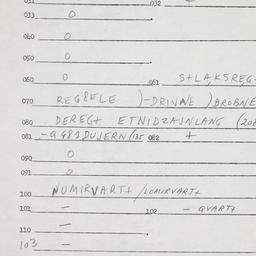 031 032 +
033 0
040 0
050 0
060 0 061 S+LAKSREG-
070 REG8ELE )-DRIVNE )DROBNE
080 DEREG+ ETNIDZAJNLANG (208
081 082 +
090 0
091 0
100 NUMIRVART+ /LOMIRVART+
101 - 102 - QVART+
110 -
103 -